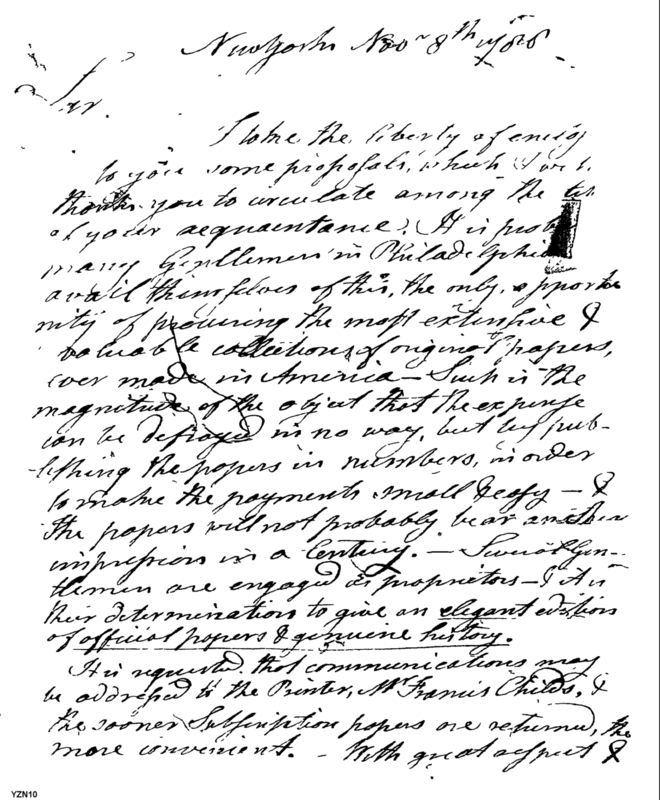 New York Novr 8th 1788
Sir.
I take the liberty of
to you some proposals, which I
thank you to circulate among the
of your acquaintance. It is
many Gentlemen in Philadelphia
avail themselves of this, the only, opportu
nity of procuring the most extensive &
valuable collections of original papers,
ever made in America — Such is the
magnitude of the object that the expense
can be defrayed in no way, but by pub-
lishing the papers in numbers, in order
to make the payments small & easy — &
the papers will not probably bear another
impression in a Century. — Several Gen-
tlemen are engaged as proprietors — & it is
their determination to give an elegant edition
of official papers & genuine history.
It is requested that communications may
be addressed to the Printer, Mr Francis Childs, &
the sooner Subscription papers are returned, the
more convenient. — With great respect &
YZN10